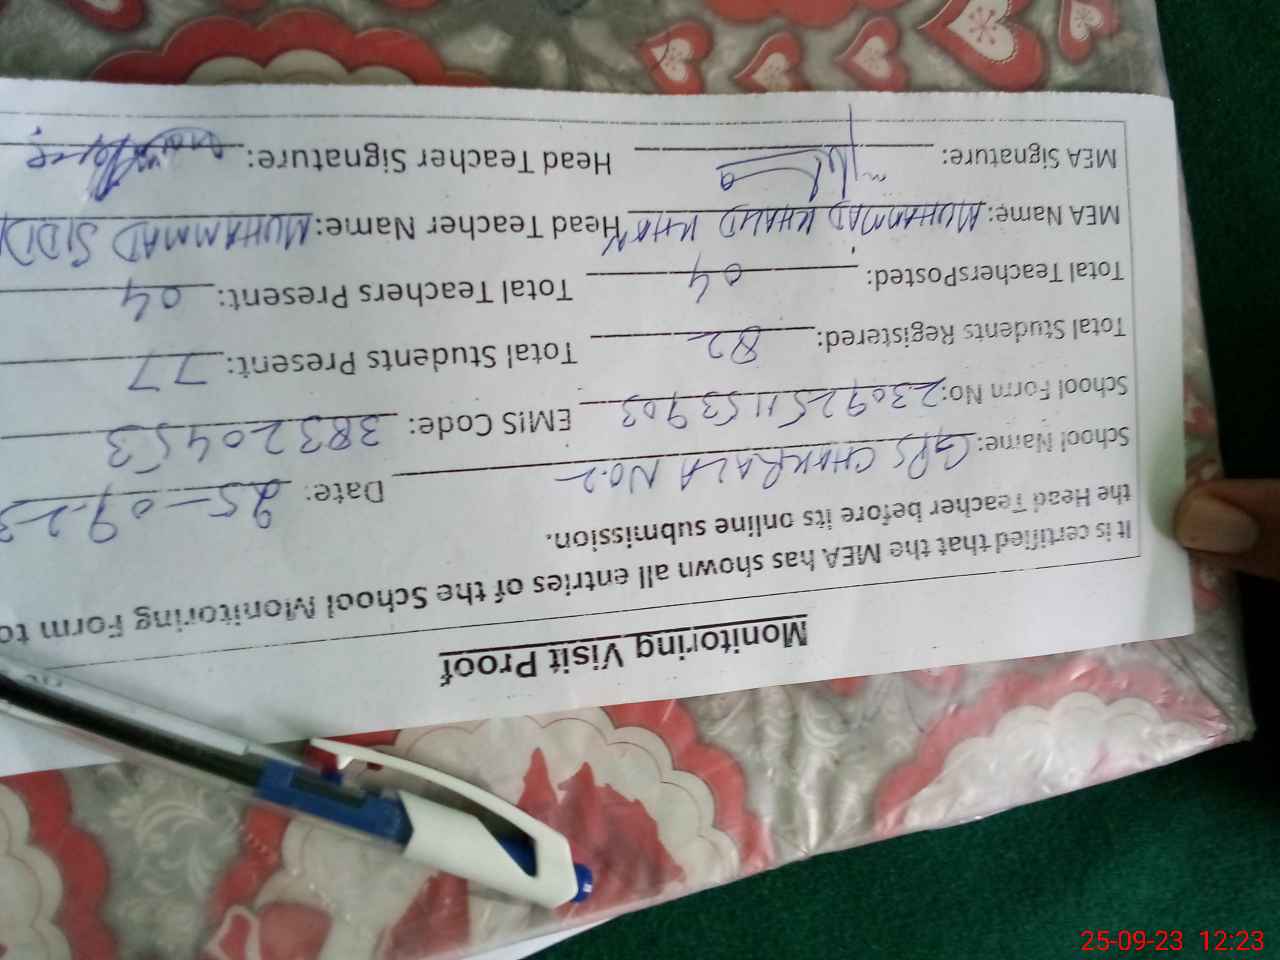 Monitoring Visit Proof
It is certified that the MEA has shown all entries of the School Monitoring Form to
the Head Teacher before its online submission.
School Name: GPS CHAKRALA NO.2 Date: 25-09-23
School Form No: 2309251153903 EMIS Code: 38320453
Total Students Registered: 82 Total Students Present: 77
Total TeachersPosted: 04 Total Teachers Present: 04
MEA Name: MUHAMMAD KHALID KHAN Head Teacher Name: MUHAMMAD SIDDI
MEA Signature: Head Teacher Signature:
25-09-23 12:23